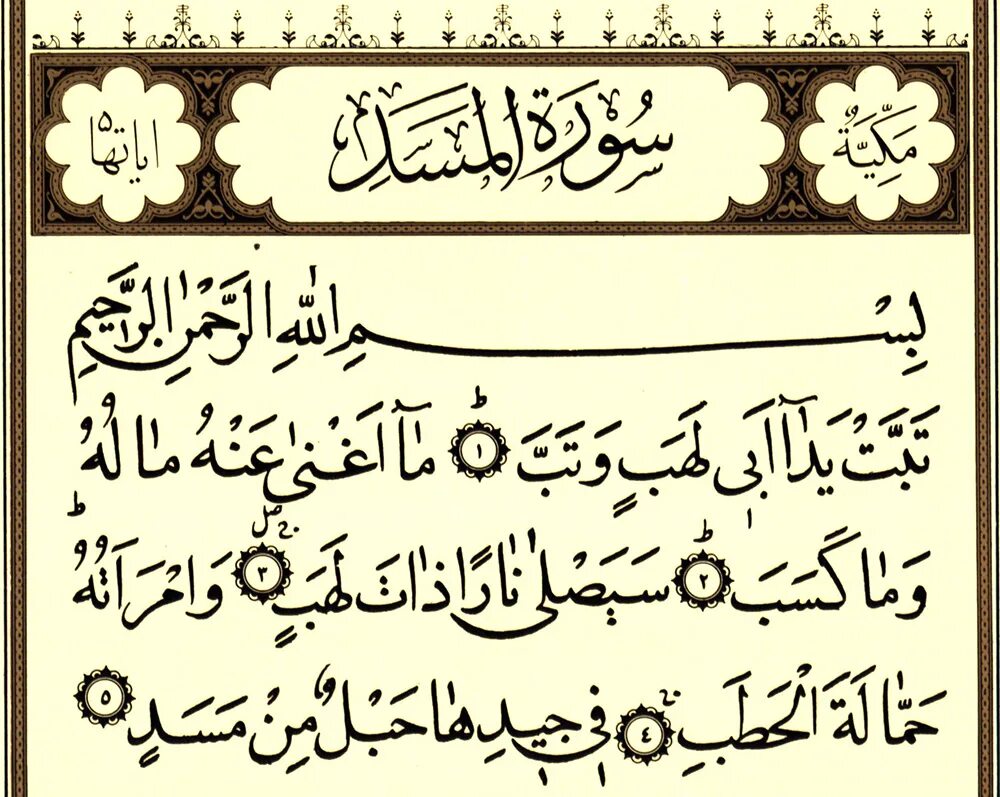 مَكِّيَّةٌ سُورَةُ الْمَسَدِ اياتها ٥
بِسْمِ اللّٰهِ الرَّحْمٰنِ الرَّحِيمِ
تَبَّتْ يَدَٓا اَبٖى لَهَبٍ وَتَبَّ ؕ ﴿١﴾ مَٓا اَغْنٰى عَنْهُ مَالُهُ
وَمَا كَسَبَ ؕ ﴿٢﴾ سَيَصْلٰى نَارًا ذَاتَ لَهَبٍ ۖ ﴿٣﴾ وَامْرَاَتُهُ ؕ
حَمَّالَةَ الْحَطَبِ ﴿٤﴾ فٖى جٖيدِهَا حَبْلٌ مِنْ مَسَدٍ ﴿٥﴾